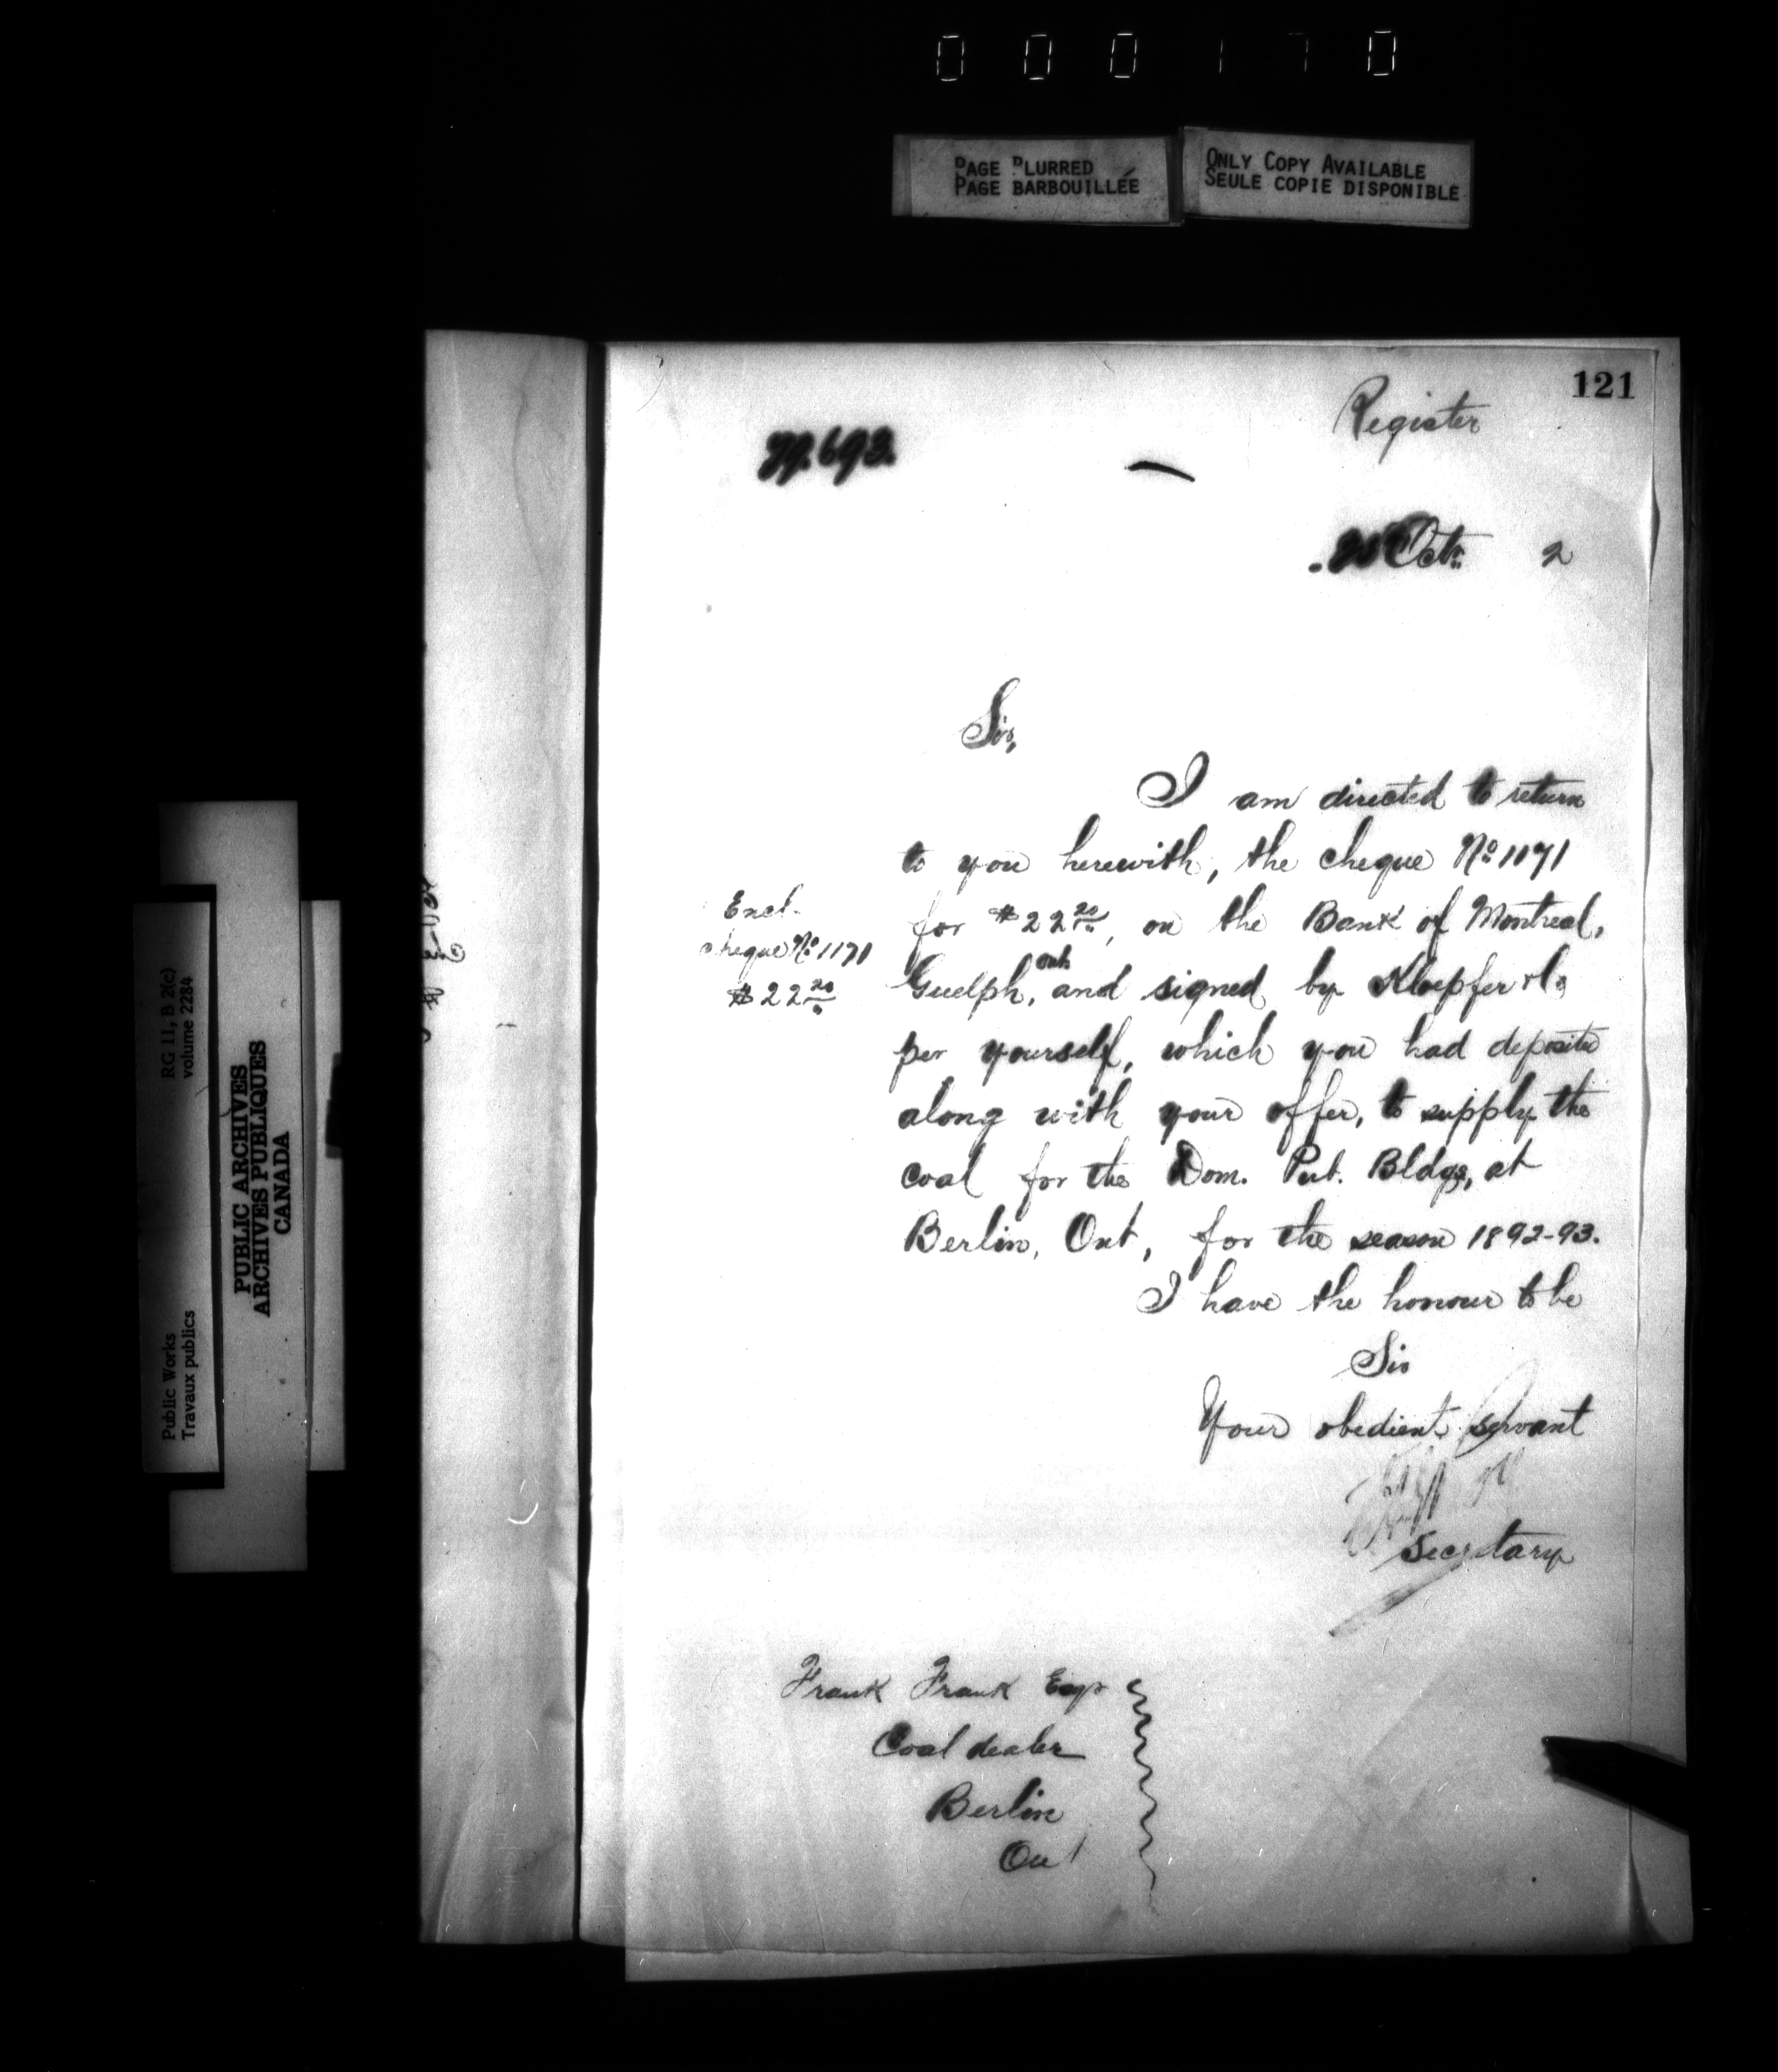 000170
PAGE BLURRED
PAGE BARBOUILLÉE
ONLY COPY AVAILABLE
SEULE COPIE DISPONIBLE
121
Register
Octr. 2
Sir,
I am directed to return
to you herewith, the cheque No. 1171
for $22 20, on the Bank of Montreal,
Guelph, Ont. and signed by Kloepfer & Co
per yourself, which you had deposite
along with your offer, to supply the
coal for the Dom. Pub. Bldgs, at
Berlin, Ont, for the season 1892-93.
I have the honour to be
Sir
Your obedient servant
Secretary
Encl.
cheque No. 1171
$22 20
Frank Frank Esqr
Coal dealer
Berlin
Ont
Public Works
Travaux publics
RG 11, B 2(c)
volume 2284
PUBLIC ARCHIVES
ARCHIVES PUBLIQUES
CANADA